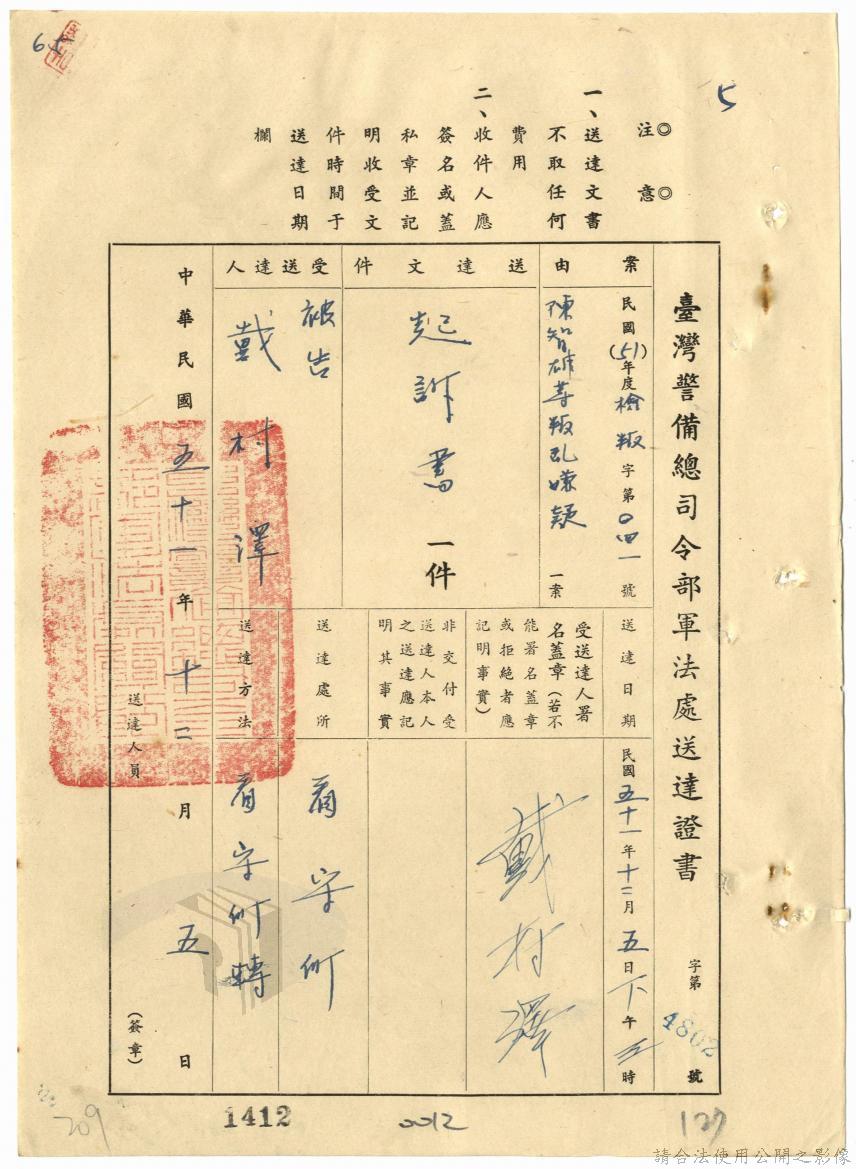 65
5
◎注意◎
一、送達文書
不取任何
費用
二、收件人應
簽名或蓋
私章並記
明收受文
件時間于
送達日期
欄
臺灣警備總司令部軍法處送達證書
字第4802號
案由
民國(51)年度檢叛字第〇四一號
陳智雄等叛乱嫌疑一案
送達文件
起訴書一件
受送達人
被告
戴村澤
送達日期
民國五十一年十二月五日下午五時
受送達人署
名蓋章(若不
能署名蓋章
或拒絕者應
記明事實)
戴村澤
非交付受
送達人本人
之送達應記
明其事實
送達處所
看守所
送達方法
看守所轉
中華民國五十一年十二月五日
送達人員
(簽章)
209
1412
0012
127
請合法使用公開之影像